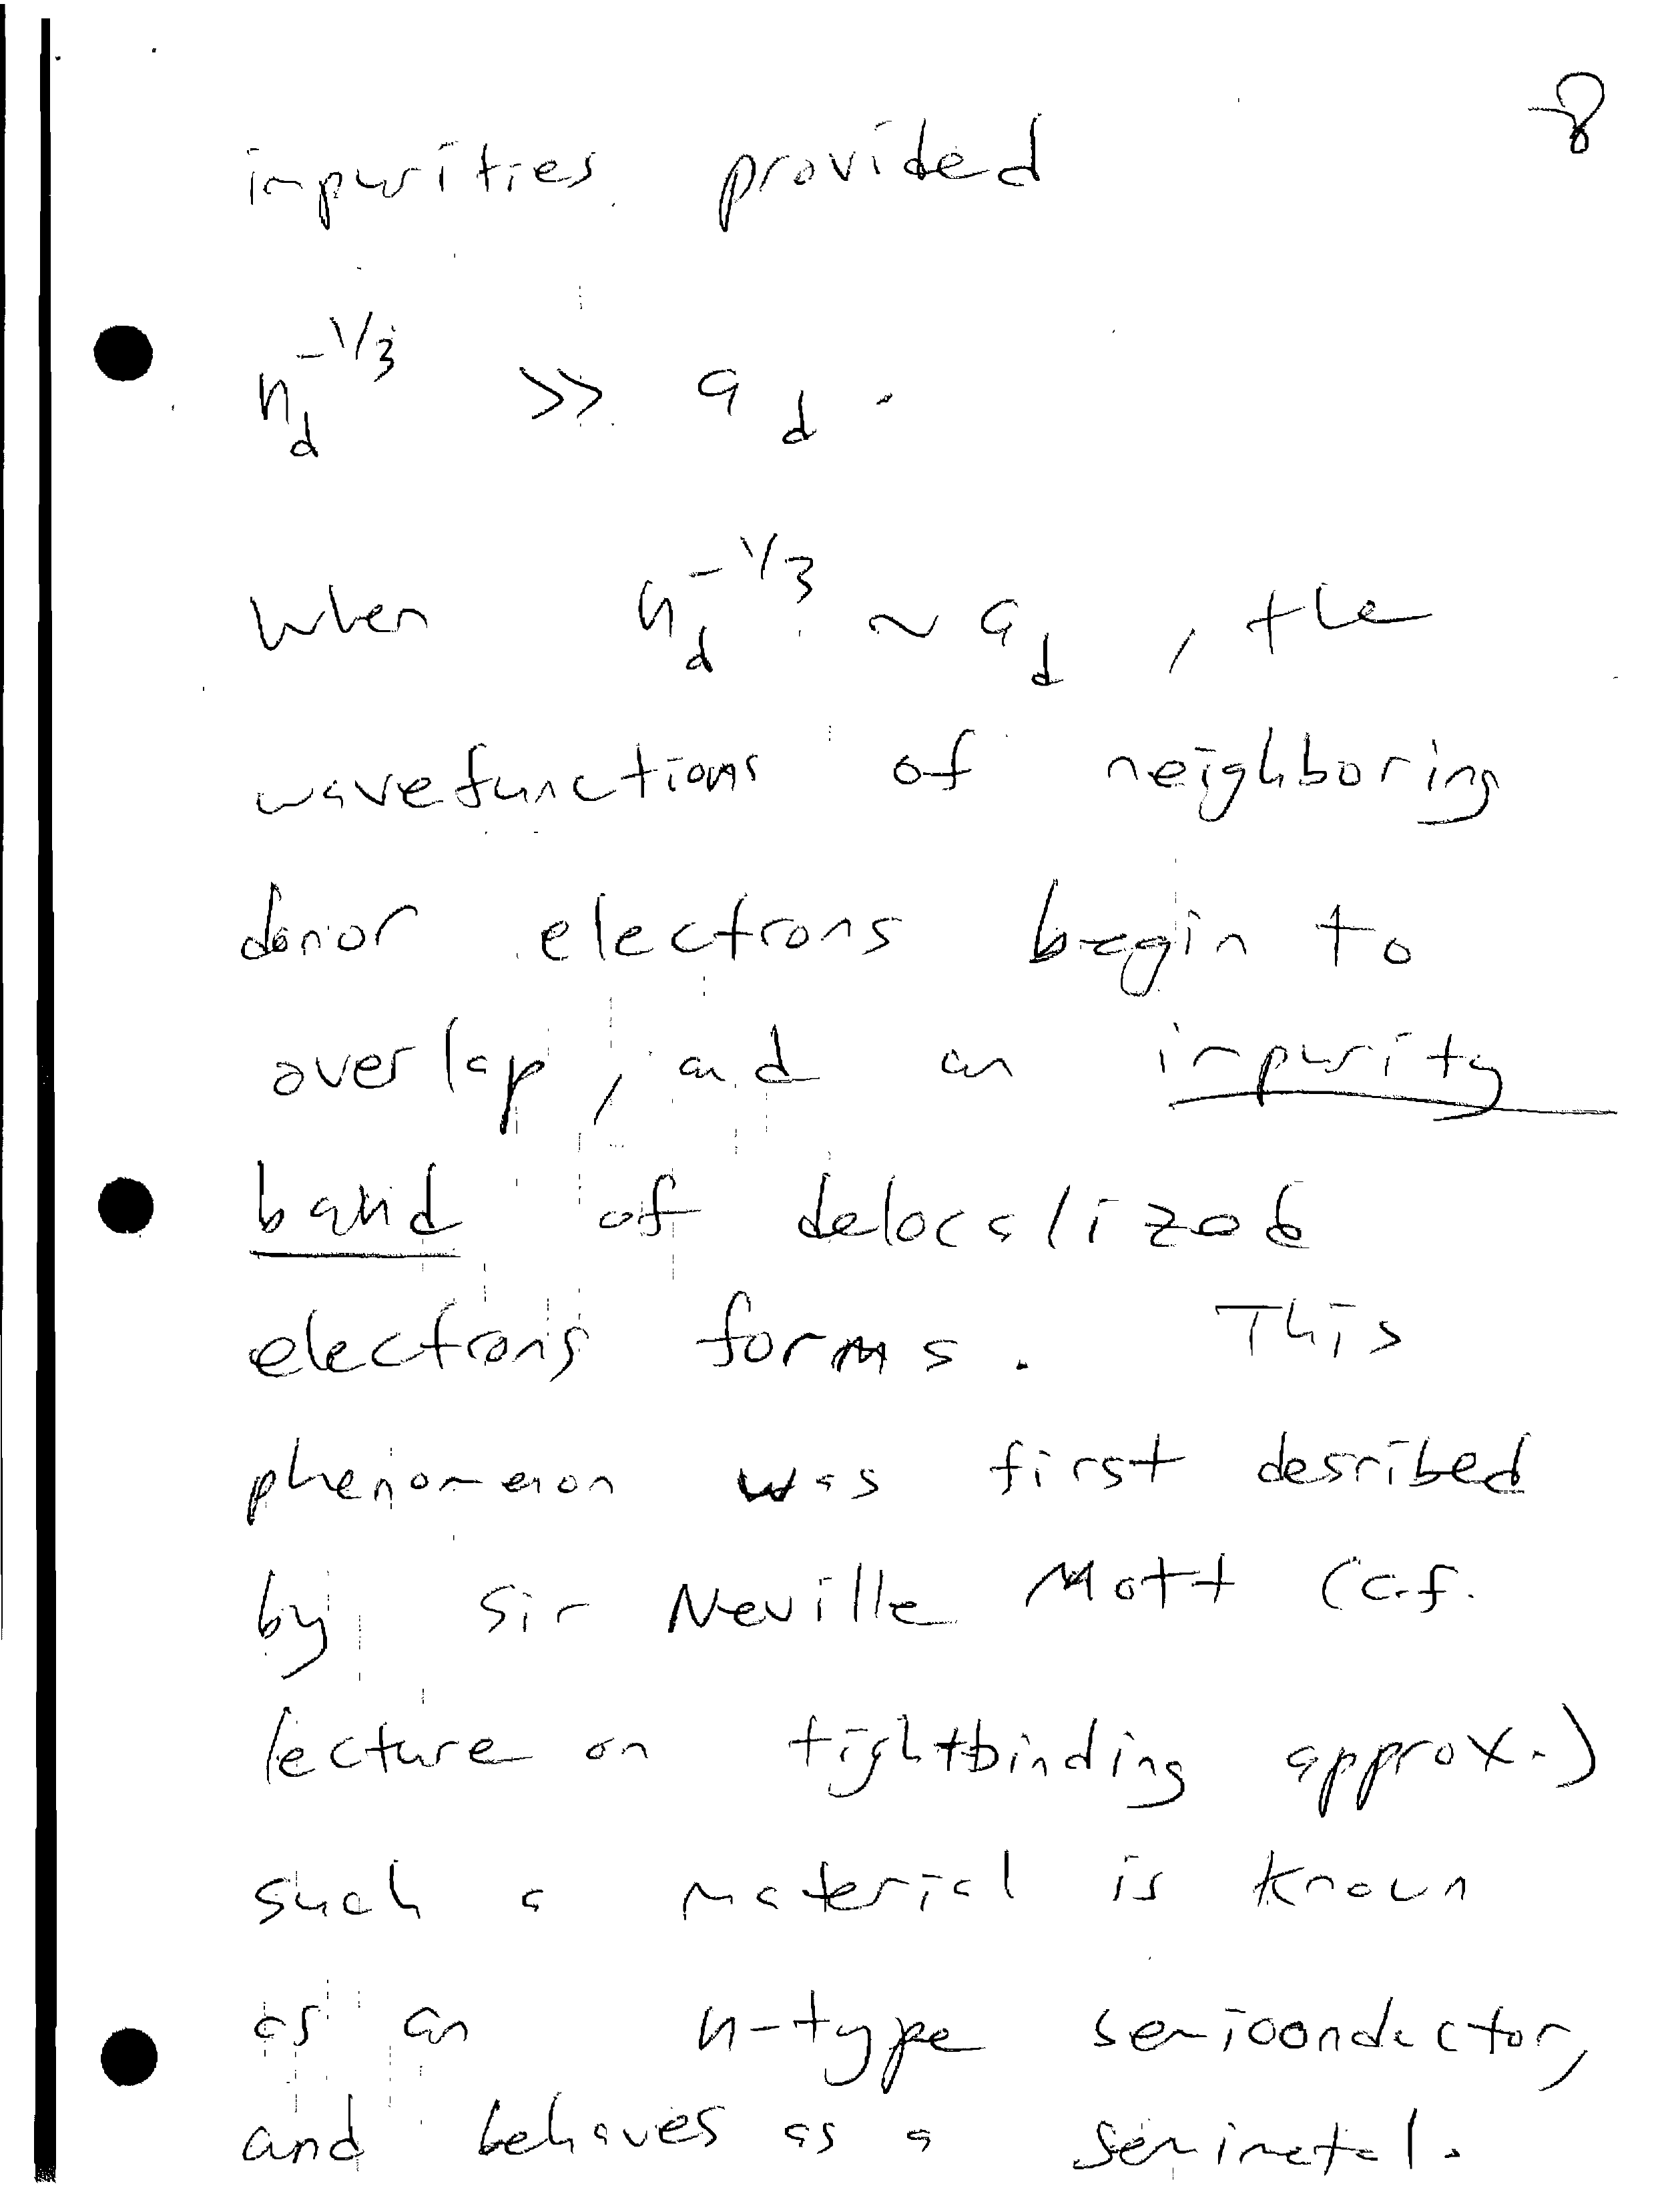 8
impurities provided
n_d^{-1/3} >> a_d.
When n_d^{-1/3} ~ a_d, the
wavefunctions of neighboring
donor electrons begin to
overlap, and an impurity
band of delocalized
electrons forms. This
phenomenon was first desribed
by Sir Neville Mott (c.f.
lecture on tightbinding approx.)
such a material is known
as an n-type semiconductor,
and behaves as a semimetal.